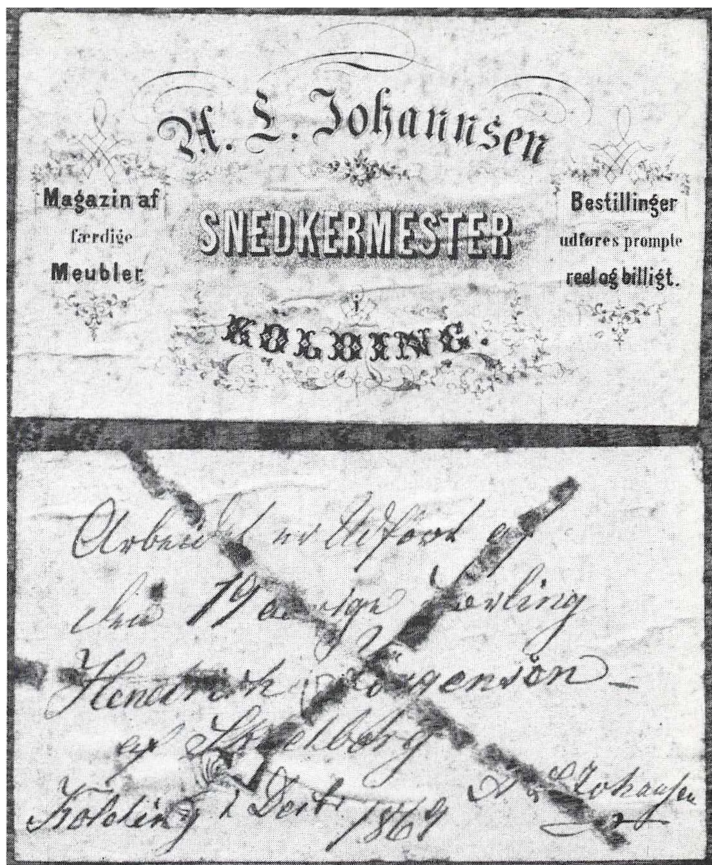 A. L. Johannsen
Magazin af
færdige
Meubler
SNEDKERMESTER
Bestillinger
udføres prompte
reel og billigt.
i
KOLDING.
Arbeidet er Udført af
den 19 aarige Lærling
Hendrik Jörgensen
af
Kolding 1 Decbr 1869 A L Johansen